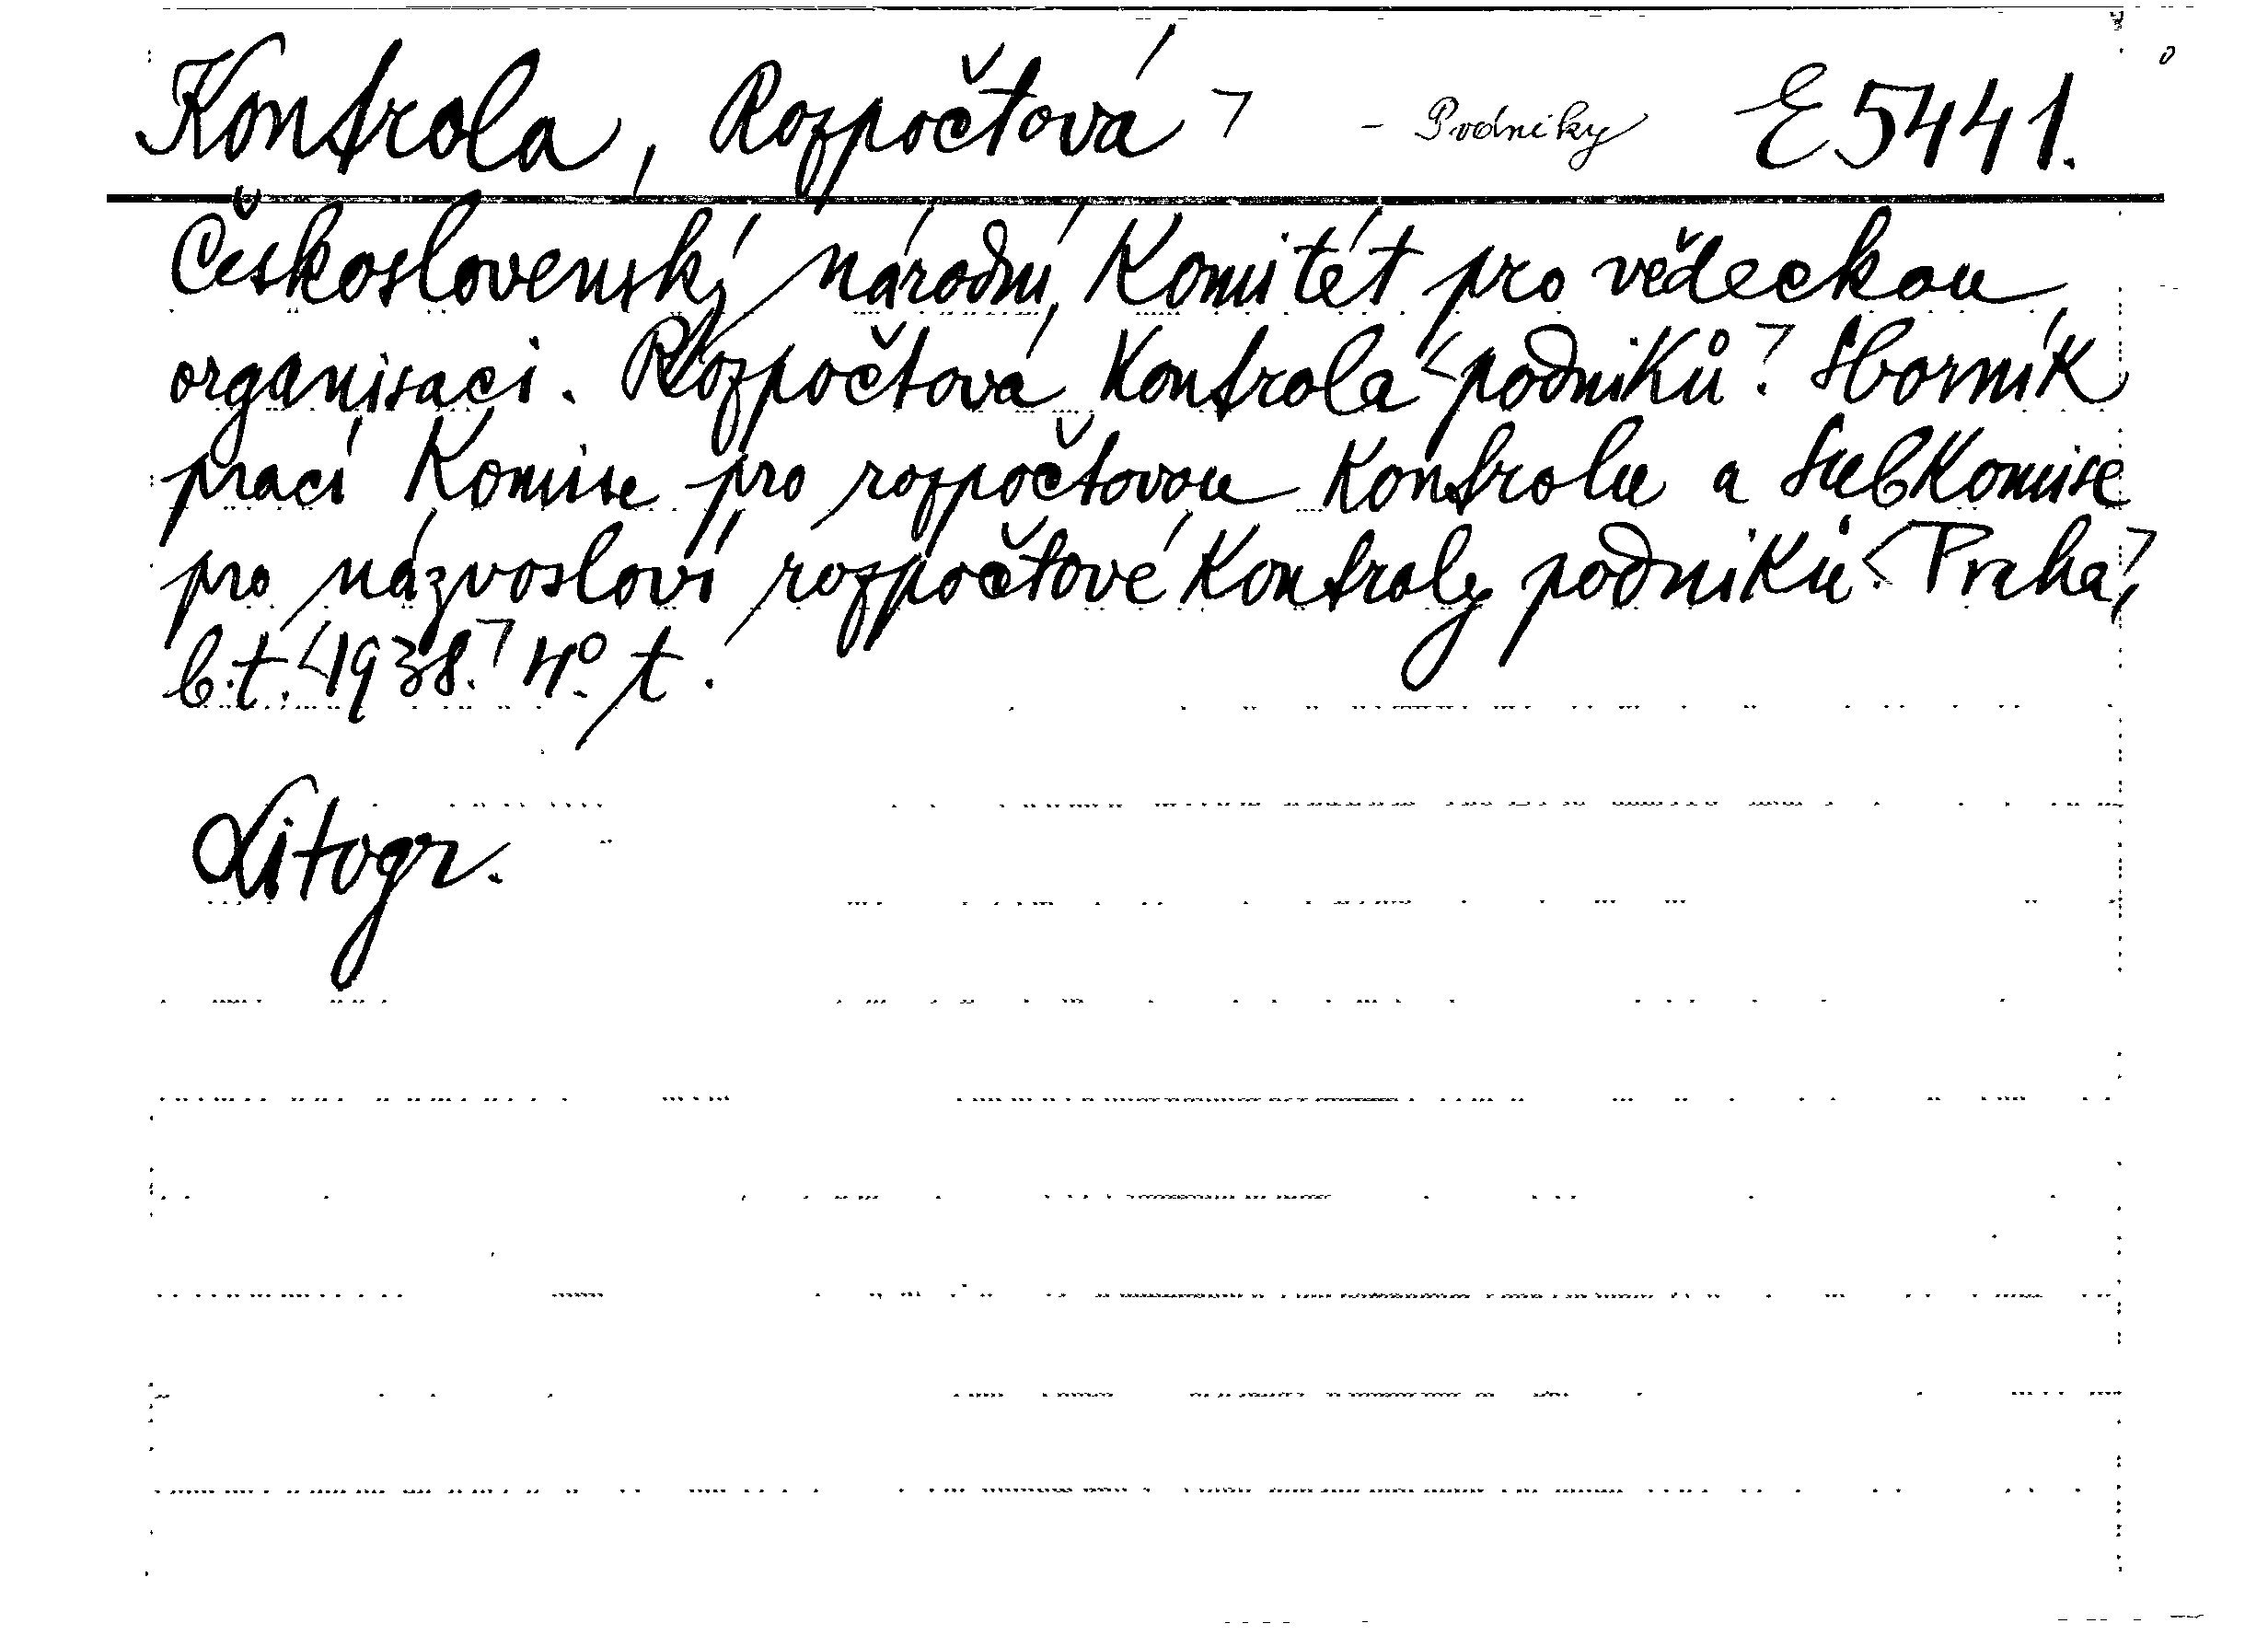 Kontrola, Rozpočtová ⌝ - Podniky E 5441.
Československý národní Komitét pro vědeckou
organisaci. Rozpočtová Kontrola <podniků.⌝ Sborník
prací Komise pro rozpočtovou Kontrolu a SubKomise
pro názvosloví rozpočtové Kontroly podniků. <Praha,⌝
b.t. <1938.⌝ 4º. t.
Litogr.